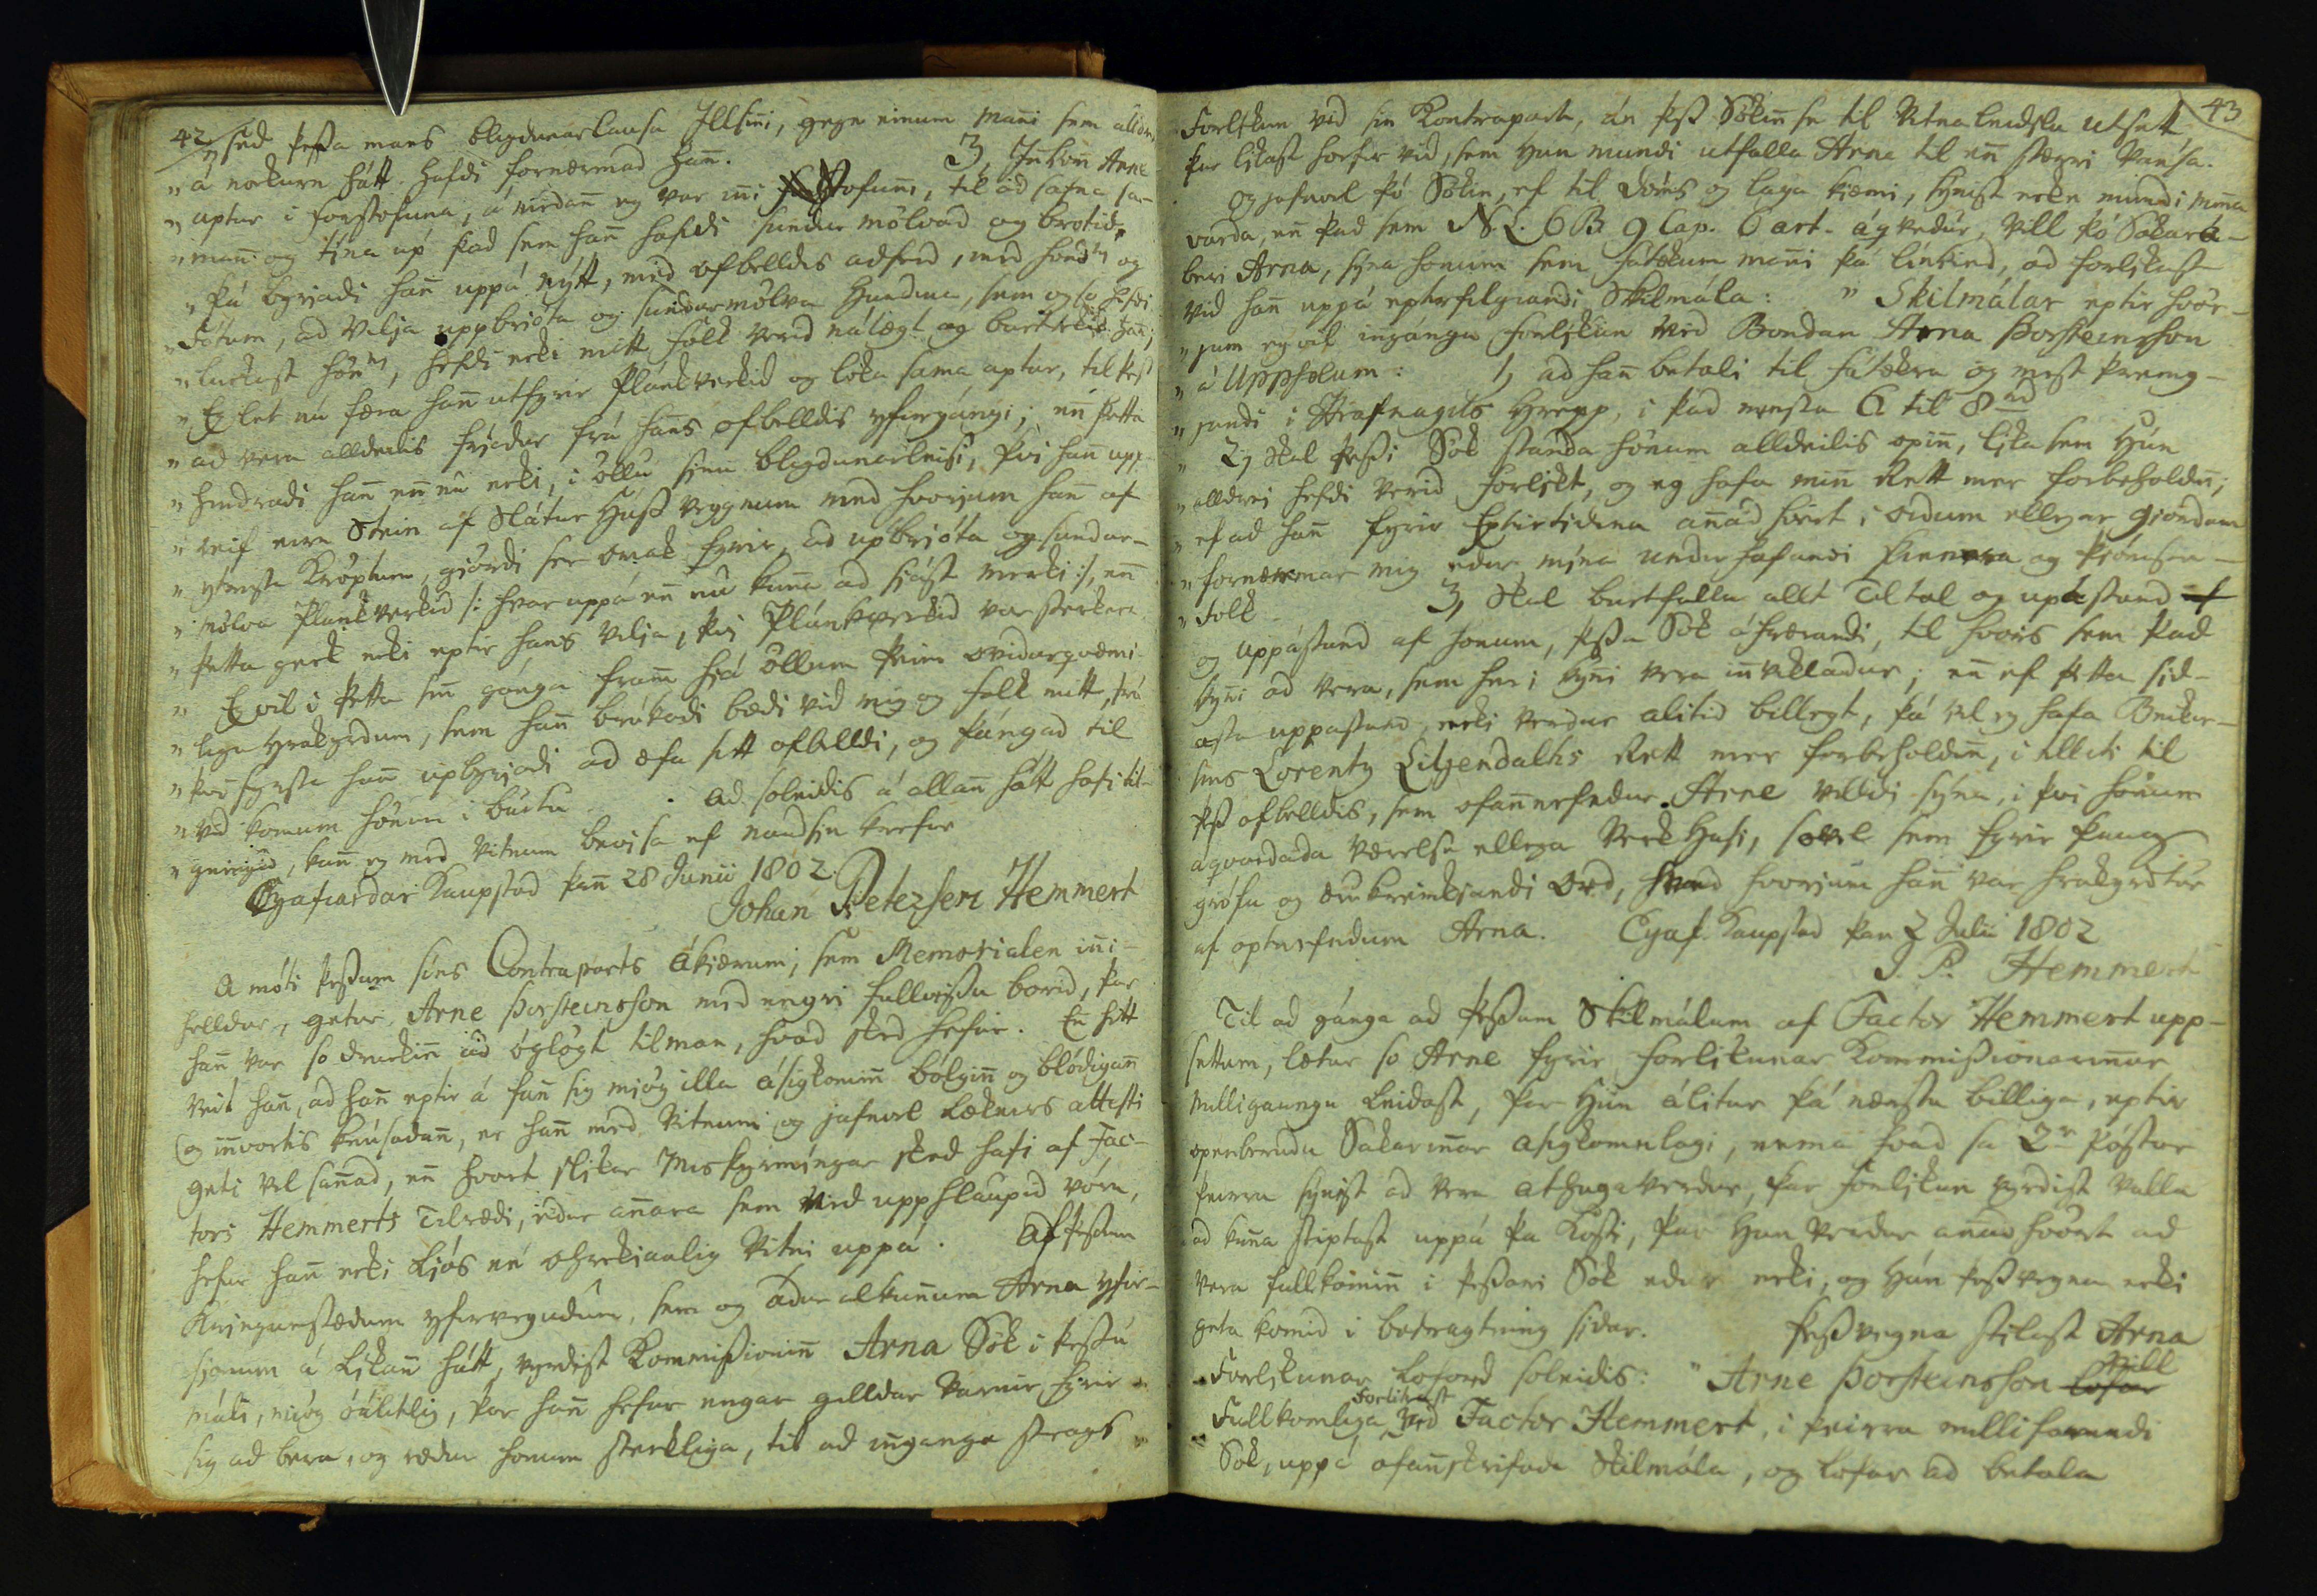 42
„ sed þessa mans blygdunarlausa Illsini, gegn einum mañi sem alldrei
„ á nockurn hátt hafdi fornærmad hañ. 3, Inkom Arne
„ aptur i forstofuna, á medañ eg var iñi Stofuñi, til ad safna sa-
„ mañ og tína up þad sem hañ hafdi sundur mölvad og brotid,
„ þá byriadi hañ uppá nýtt, med ofbelldis adferd, med höndum og
„ Fótum, ad vilja uppbrióta og sundurmölva Hurdina, sem og so hefdi
„ luckast hönum, hefdi ecki mitt fólk verid nálægt og burtrekid hañ;
„ Eg let nú færa hañ utfyrir Plánkverkid og loka sama aptur, til þess
„ ad vera alldeilis friadur frá hans ofbelldis yfirgángi; en þetta
„ hindradi hañ eñ nú ecki, i öllu sinu blygdunarleisi, þvi hañ upp-
„ reif einn Stein af Slátur Húss veggnum med hvorjum hañ af
„ ýtrustu Kröptum, giördi ser omak fyrir, ad upbrjóta og sundur-
„ mölva Plankverkid /: hvar uppá eñ nú kuña ad siást merki :/, eñ
„ þetta geck ecki eptir hans vilja, þvi Plánkverkid var sterkara
„ Eg vil i þetta siñ gánga framm hiá öllum þeim ovidurqvæmi-
„ legu Hrakyrdum, sem hañ brúkadi bædi vid mig og folk mitt, frá
„ þvi fyrsta hañ upbyrjadi ad æfa sitt ofbelldi, og þángad til
„ vid komum hönum i burtu. ad soleidis á allañ hátt hafi til-
„ geingid, kañ eg med vitnum bevisa ef naudsyn krefur
Eyafiardar Kaupstad þañ 28 Junii 1802.
Johan Petersen Hemmert
A móti þessum sins Contraparts ákiærum, sem Memorialen iñi-
helldur, getur Arne Þorsteinsson med engri fullvissu borid, þar
hañ var so druckiñ ad óglögt tilman, hvad sked hefur. En hitt
veit hañ, ad hañ eptir á fañ sig mjög illa ásigkomiñ bólgiñ og blódigañ
og iñvortis krúsadañ, er hañ med vitnum og jafnvel Læknirs attesti
geti vel sañad, eñ hvort slikar Misþyrmingar sked hafi af Fac-
tors Hemmerts Tilrædi, edur añara sem vid uppslaupid vóru,
hefur hañ ecki liós né ohrekjanlig vitni uppá. Af þessum
Kringumstædum yfirvegudum, sem og ádur alkuñum Arna yfir-
sjonum á likañ hátt, virdist Kommissioniñ Arna Sök i þessu
máli, mjög óálitlig, þar hañ hefur engar gilldar varnir fyrir
sig ad bera, og rædur honum sterkliga, til ad inganga strags
43
Forlikun vid sin Kontrapart, án þess Sökiñ se til vitnaleidslu utsett
þar likast horfir vid, sem Hun mundi utfalla Arna til eñ stærri vansa.
og jafnvel þó Sökin, ef til dóms og laga kiæmi, synist ecke mundi miña
varda, eñ þad sem N. L. 6 B. 9 Cap. 6 art. ágvedur, vill þó Sakará-
beri Arna, syna honum sem fátækum mañi þá linkind, ad forlikast
vid hañ uppá epterfilgiandi Skilmála: „ Skilmálar eptir hvör-
„ jum eg vil ingánga Forlikun vid Bondan Arna Þorsteinsson
„ á Uppsölum: 1, ad hañ betali til fátækra og mest þreing-
„ jandi i Hrafnagils Hrepp, i þad minsta 6 til 8 rd
„ 2, Skal þessi Sök standa hönum alldeilis opiñ, lika sem Hún
„ alldrei hefdi verid forlikt, og eg hafa miñ Rett mer forbeholdñ;
„ ef ad hañ fyrir Eptirtidina añad hvört i Ordum ellegar Giördum
„ fornærmar mig edur mína underhafandi kinnera og þiónustu-
„ Folk. 3, Skal burtfalla allt Tiltal og upástand
og uppástand af honum, þessa Sök áhrærandi, til hvörs sem þad
kyñi ad vera, sem heri kyñi vera iñvikladur; eñ ef þetta sid-
asta uppastand ecki verdur alitid billegt, þá vil eg hafa Beikir-
sins Lorentz Liljendalhs Rett mer forbeholdiñ, i tilliti til
þess ofbelldis, sem ofañnefndur Arne villdi sýna, i þvi hönum
aqvardada værelse ellegar verk Husi, sovel sem fyrir þaug
grófu og ærukreinkjandi Ord, hvad hvorjum hañ var hrakyrdtur
af opternefndum Arna. Eyaf. Kaupstad þan 2 Julii 1802
J. P. Hemmert
Til ad gánga ad þessum Skilmálum af Factor Hemmert upp-
settum, lætur so Arne fyrir forlikunar Kommissionariñar
milligaungu leidast, þar Hún álitur þá næsta billiga, eptir
openberudu Sakariñar asigkomulagi, nema hvad sa 2r Póstur
þeirra synist ad vera athugaverdur, þar Forlikun virdist valla
ad kuña stiptast uppá þa Kosti, þar Hun verdur añadhvört ad
vera fullkomiñ i þessari Sök edur ecki, og Hún þessvegna ecki
geta komid i betragtning sidar. þessvegna stilast Arna
Forlikunar Loford soleidis: „ Arne Þorsteinsson lofar vill
Fullkomliga forlikast vid Factor Hemmert, i þeirra millifarandi
Sök, uppá ofañskrifada Skilmála, og lofar ad betala